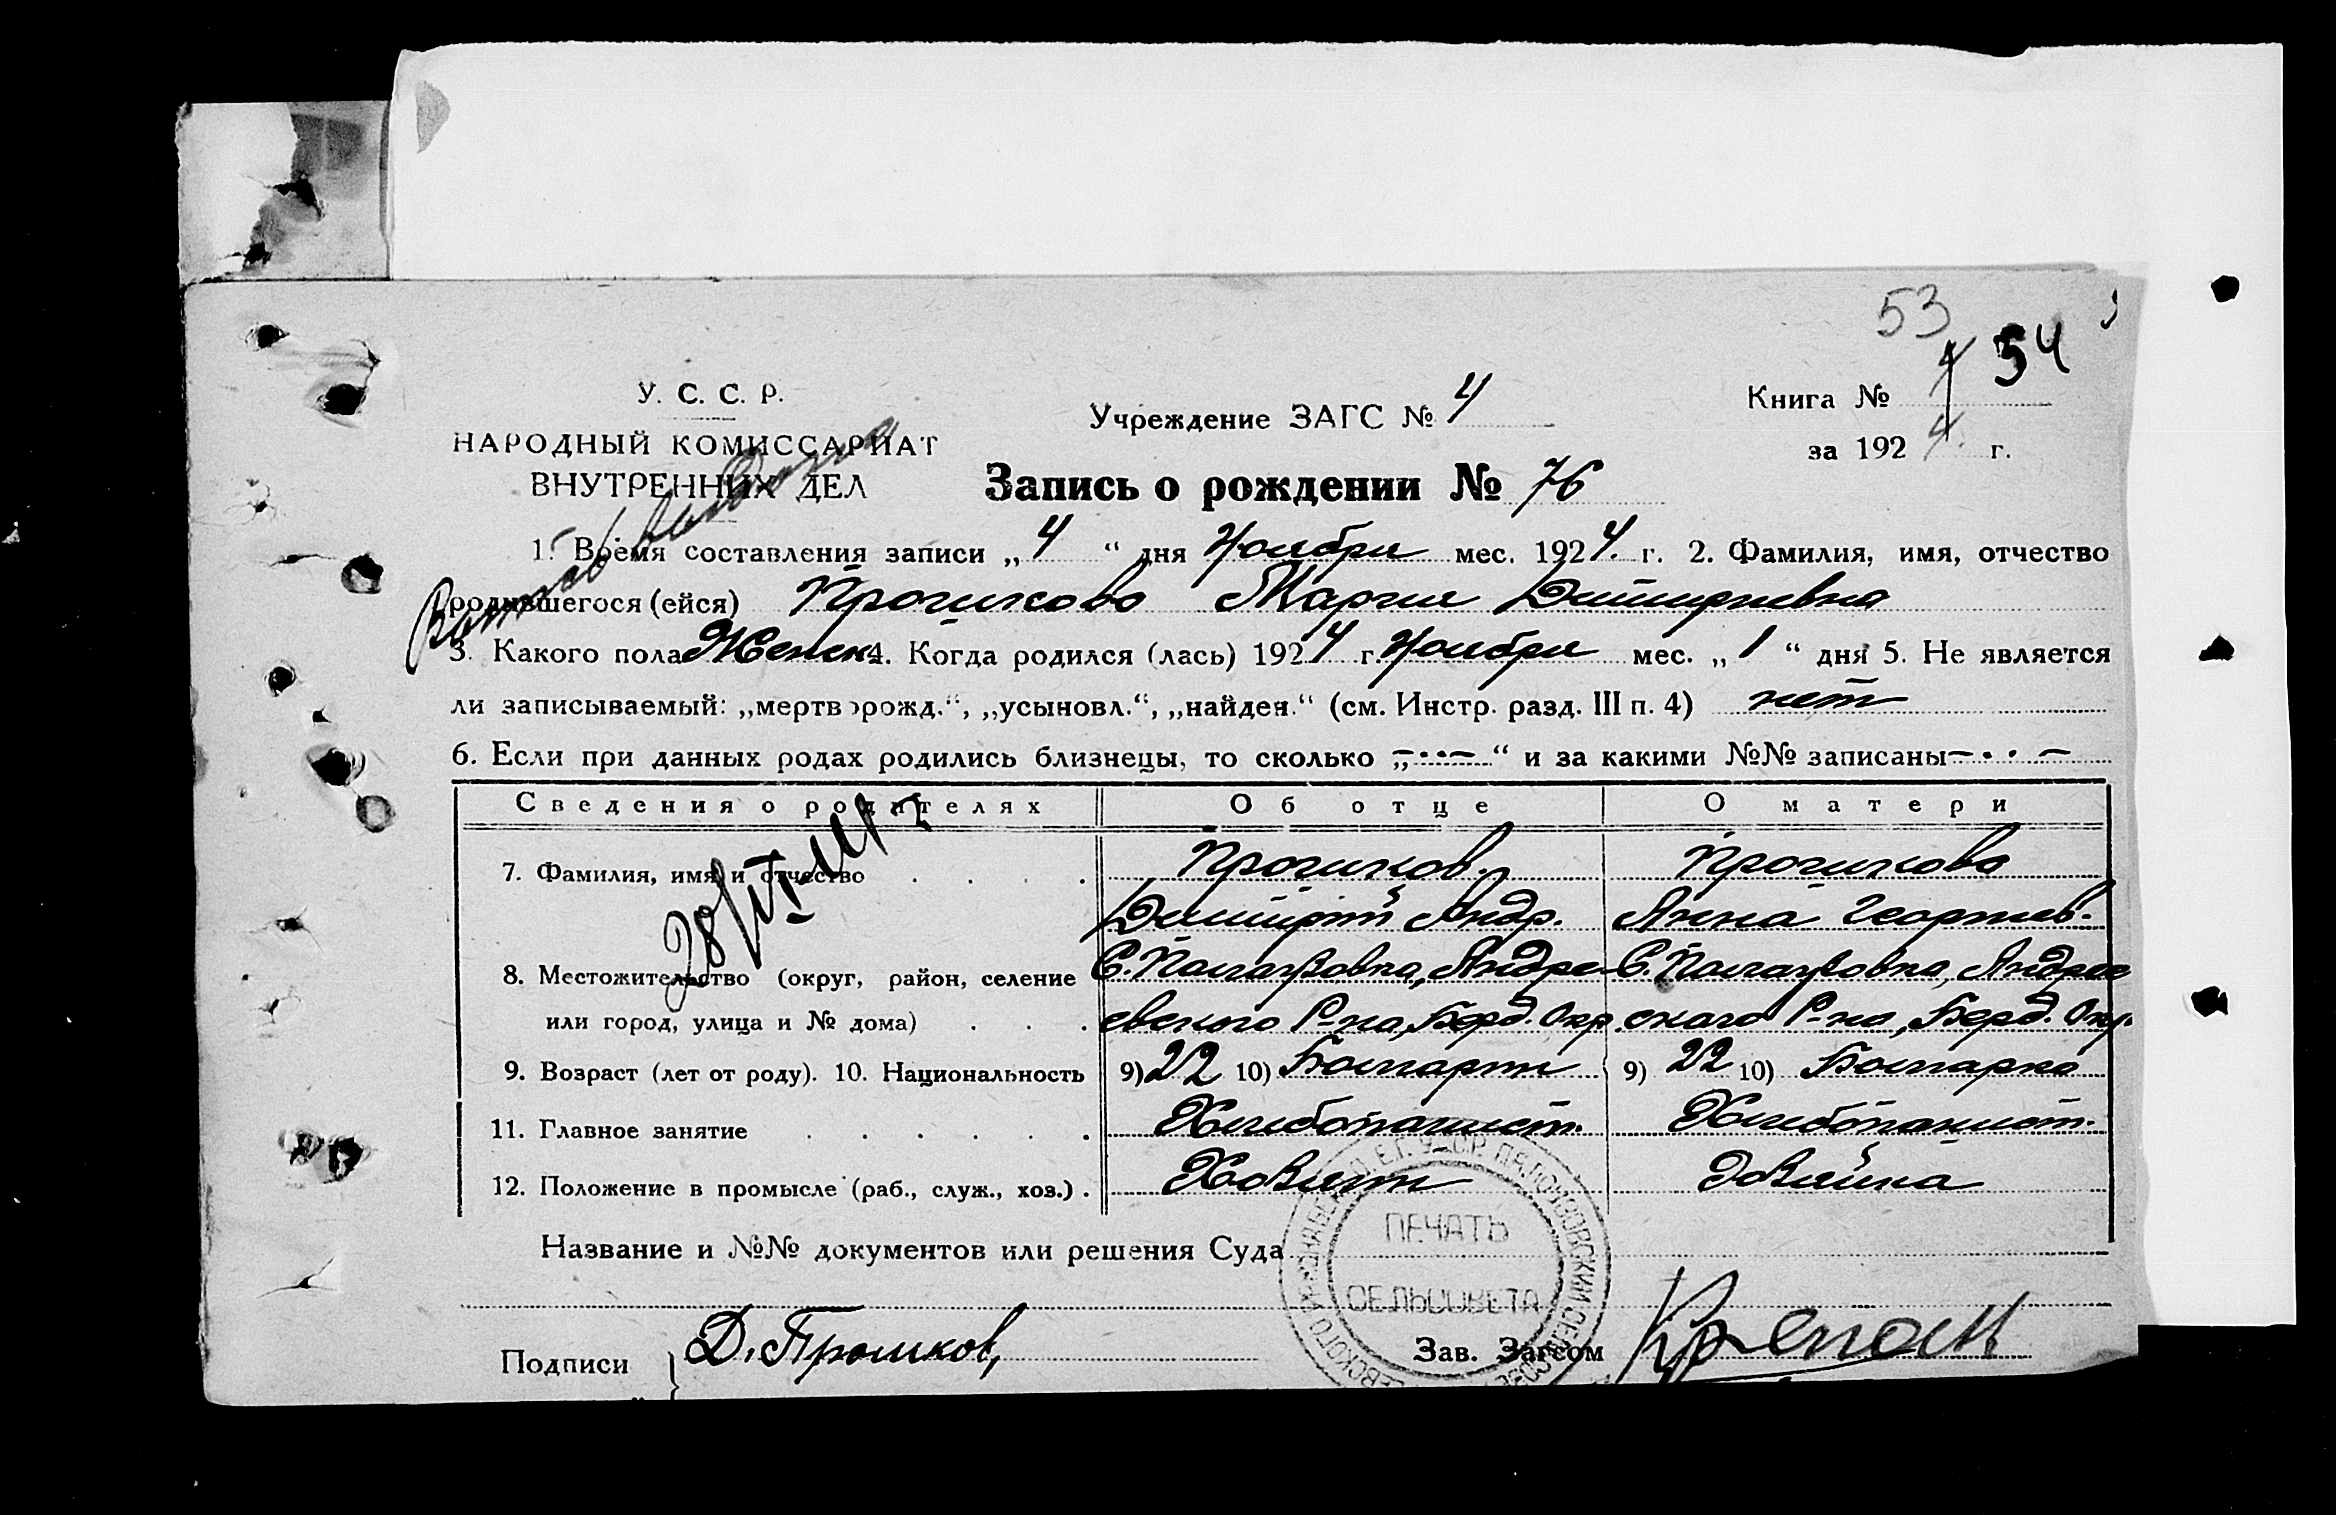 53
54
У. С. С. Р.
НАРОДНЫЙ КОМИССАРИАТ
ВНУТРЕННИХ ДЕЛ
Учреждение ЗАГС № 4
Книга №
за 1924 г.
Запись о рождении № 76
1. Время составления записи „4“ дня Ноября мес. 1924. г. 2. Фамилия, имя, отчество
родившегося (ейся) Мария Дмитриевна
3. Какого пола Женск. 4. Когда родился (лась) 1924 г. Ноября мес. „1“ дня 5. Не является
ли записываемый: „мертворожд.“, „усыновл.“, „найден.“ (см. Инстр. разд. III п. 4) нет
6. Если при данных родах родились близнецы, то сколько „-··-“ и за какими №№ записаны -··-
Сведения о родителях Об отце О матери
7. Фамилия, имя и отчество
Дмитрий Андр. Анна Георгиев.
8. Местожительство (округ, район, селение
или город, улица и № дома) евского Р-на, Берд. Окр. ского Р-на, Берд. Окр.
9. Возраст (лет от роду). 10. Национальность 9) 22 10) Болгарин 9) 22 10) Болгарка
11. Главное занятие Хлебопашест. Хлебопашест.
12. Положение в промысле (раб., служ., хоз.). Хозяин Хозяйка
Название и №№ документов или решения Суда
ПЕЧАТЬ
СЕЛЬСОВЕТА
Подписи Д.
Зав. Загсом